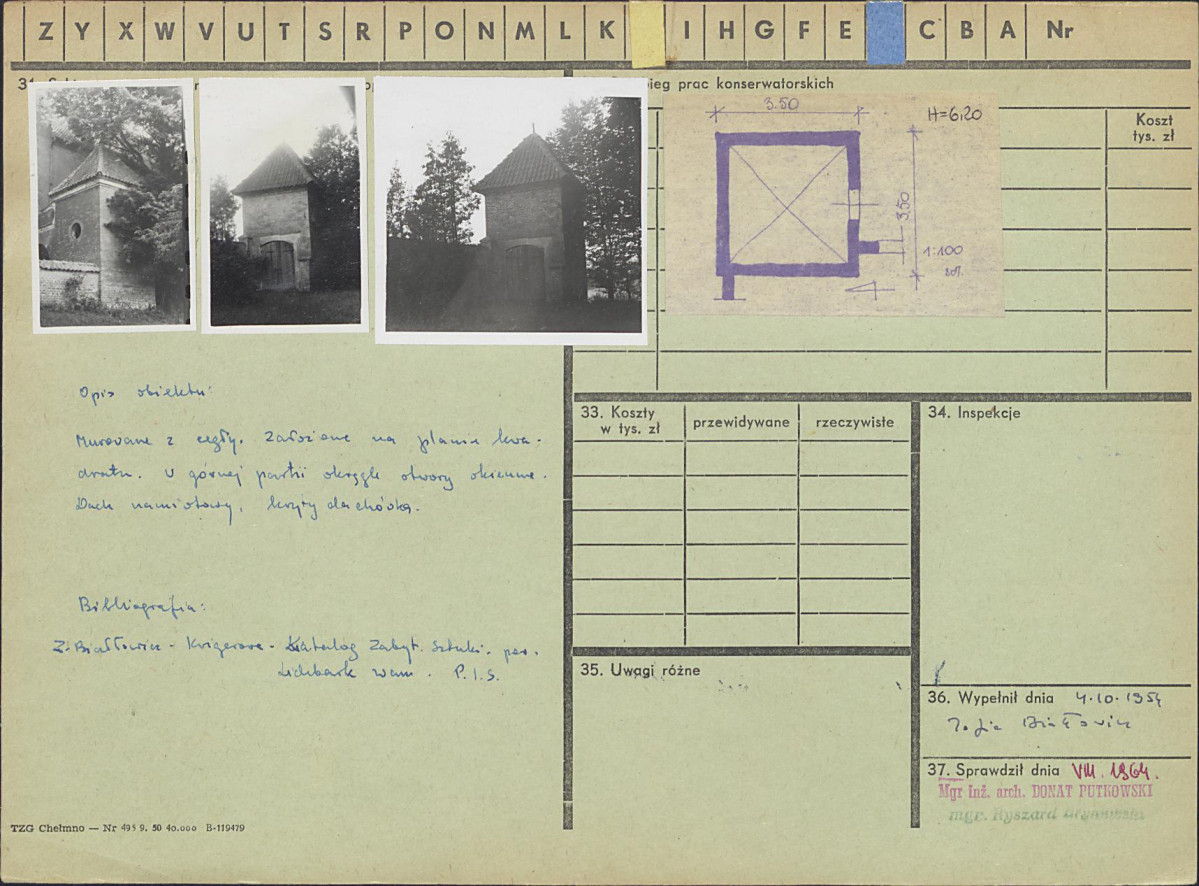 Z Y X W V U T S R P O N M L K I H G F E C B A Nr
31.
ieg prac konserwatorskich
Koszt
tys. zł
3.50
H=6,20
3,50
1:100
Opis obiektu:
Murowane z cegły. Założone na planie kwa-
dratu. W górnej partii okrągłe otwory okienne.
Dach namiotowy, kryty dachówką.
Bibliografia:
Z. Białłowicz - Krygierowa - Katalog Zabyt. Sztuki. pow.
Lidzbark warm. P.I.S.
33. Koszty
w tys. zł
przewidywane
rzeczywiste
34. Inspekcje
35. Uwagi różne
36. Wypełnił dnia 4.10.195
Zofia Białłowicz
37. Sprawdził dnia VIII. 1964.
Mgr Inż. arch. DONAT PUTKOWSKI
mgr. Ryszard
TZG Chełmno — Nr 495 9. 50 40.000 B-119479